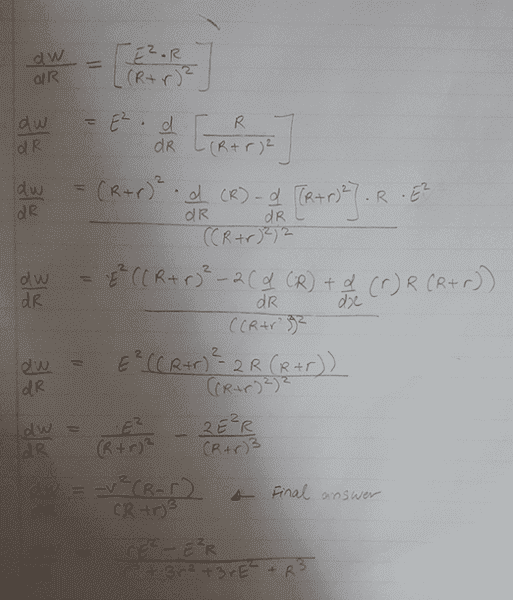 dW/dR = [E²·R/(R+r)²]
dw/dR = E² · d/dR [R/(R+r)²]
dw/dR = (R+r)² · d/dR (R) - d/dR [(R+r)²] · R · E² / ((R+r)²)²
dw/dR = E²((R+r)² - 2(d/dR (R) + d/dx (r) R (R+r)) / ((R+r)²)²
dw/dR = E²((R+r)² - 2R(R+r)) / ((R+r)²)²
dw/dR = E²/(R+r)² - 2E²R/(R+r)³
= -v²(R-r)/(R+r)³ ← Final answer
rE² - E²R / + 3r² + 3rE² + R³